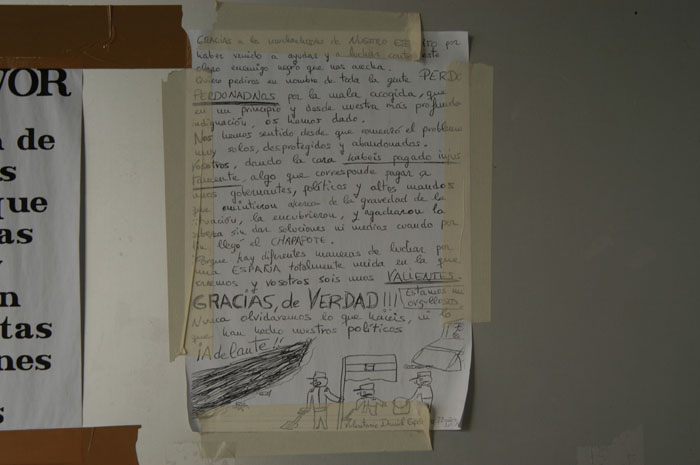 VOR
a de
s
que
as
y
n
tas
nes
s
GRACIAS a la de NUESTRO EJERCITO por
haber venido a ayudar y a luchar contra este
enemigo negro que nos acecha.
Quiero pediros en nombre de toda la gente PERDO
PERDONADNOS por la mala acogida, que
en un principio y desde nuestra más profunda
indignación, os hemos dado.
Nos hemos sentido desde que comenzó el problema
muy solos, desprotegidos y abandonados.
Vosotros, dando la cara habeis pagado injus
tamente, algo que corresponde pagar a
unos gobernantes, políticos y altos mandos
que mintieron acerca de la gravedad de la
situación, la encubrieron, y agacharon la
cabeza sin dar soluciones ni medios cuando por
fin llegó el CHAPAPOTE.
Porque hay diferentes maneras de luchar por
una ESPAÑA totalmente unida en la que
creemos y vosotros sois unos VALIENTES.
GRACIAS, de VERDAD!!! Estamos muy
orgullosos
Nunca olvidaremos lo que habeis, ni lo
que han hecho nuestros políticos
¡Adelante!!
Voluntario David